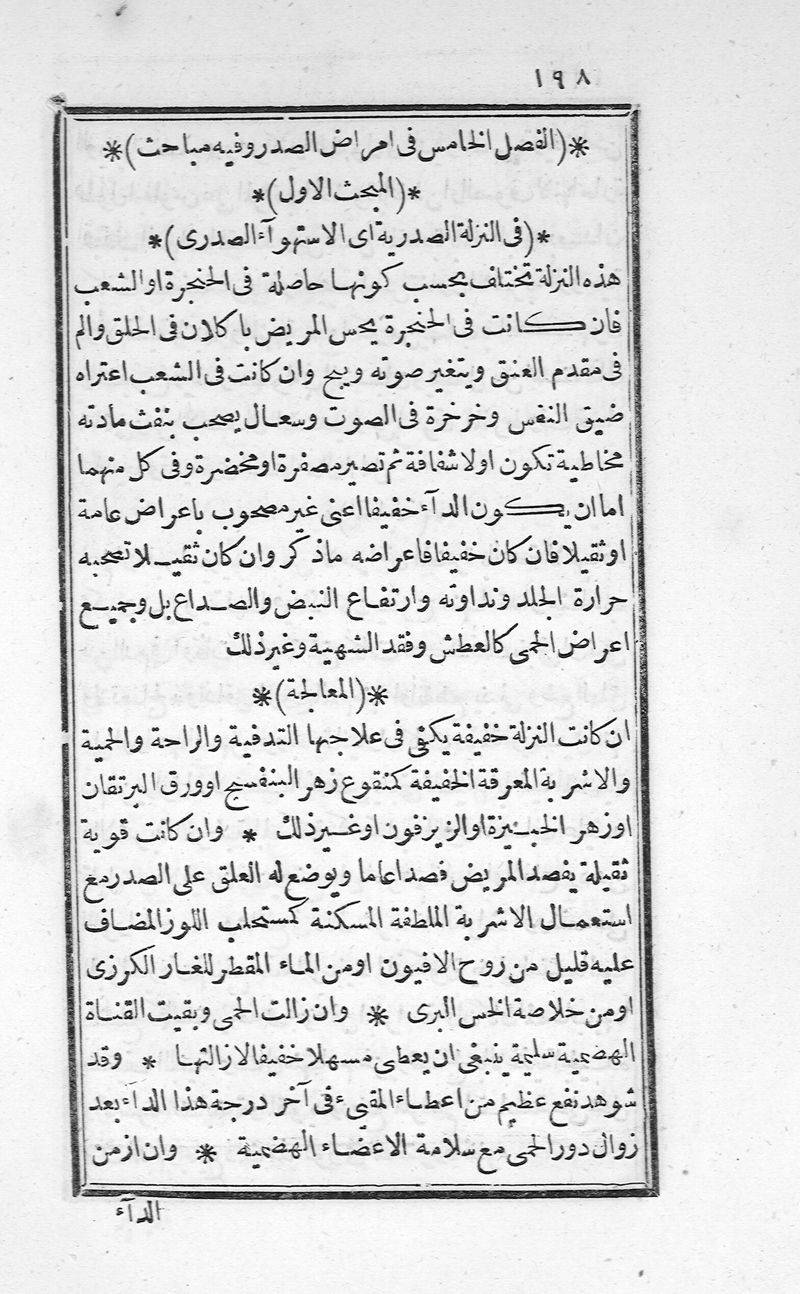 ١٩٨
*(الفصل الخامس فى امراض الصدر وفيه مباحث)*
*(المبحث الاول)*
*(فى النزلة الصدرية اى الاستهوآء الصدرى)*
هذه النزلة تختلف بحسب كونها حاصلة فى الحنجرة او الشعب
فان كانت فى الحنجرة يحس المريض باكلان فى الحلق والم
فى مقدم العنق ويتغير صوته ويبح وان كانت فى الشعب اعتراه
ضيق النفس وخرخرة فى الصوت وسعال يصحب بنفث مادته
مخاطية تكون اولا شفافة ثم تصير مصفرة او مخضرة وفى كل منهما
اما ان يكون الدآء خفيفا اعنى غير مصحوب باعراض عامة
او ثقيلا فان كان خفيفا فاعراضه ماذكر وان كان ثقيلا تصحبه
حرارة الجلد ونداوته وارتفاع النبض والصداع بل وجميع
اعراض الحمى كالعطش وفقد الشهية وغير ذلك
*(المعالجة)*
ان كانت النزلة خفيفة يكفى فى علاجها التدفية والراحة والحمية
والاشربة المعرقة الخفيفة كمنقوع زهر البنفسج او ورق البرتقان
او زهر الخبيزة او الزيزفون او غير ذلك * وان كانت قوية
ثقيلة يفصد المريض فصدا عاما ويوضع له العلق على الصدر مع
استعمال الاشربة الملطفة المسكنة كمستحلب اللوز المضاف
عليه قليل من روح الافيون او من الماء المقطر للغار الكرزى
او من خلاصة الخس البرى * وان زالت الحمى وبقيت القناة
الهضمية سليمة ينبغى ان يعطى مسهلا خفيفا لازالتها * وقد
شوهد نفع عظيم من اعطاء المقيىء فى آخر درجة هذا الدآء بعد
زوال دور الحمى مع سلامة الاعضاء الهضمية * وان ازمن
الدآء